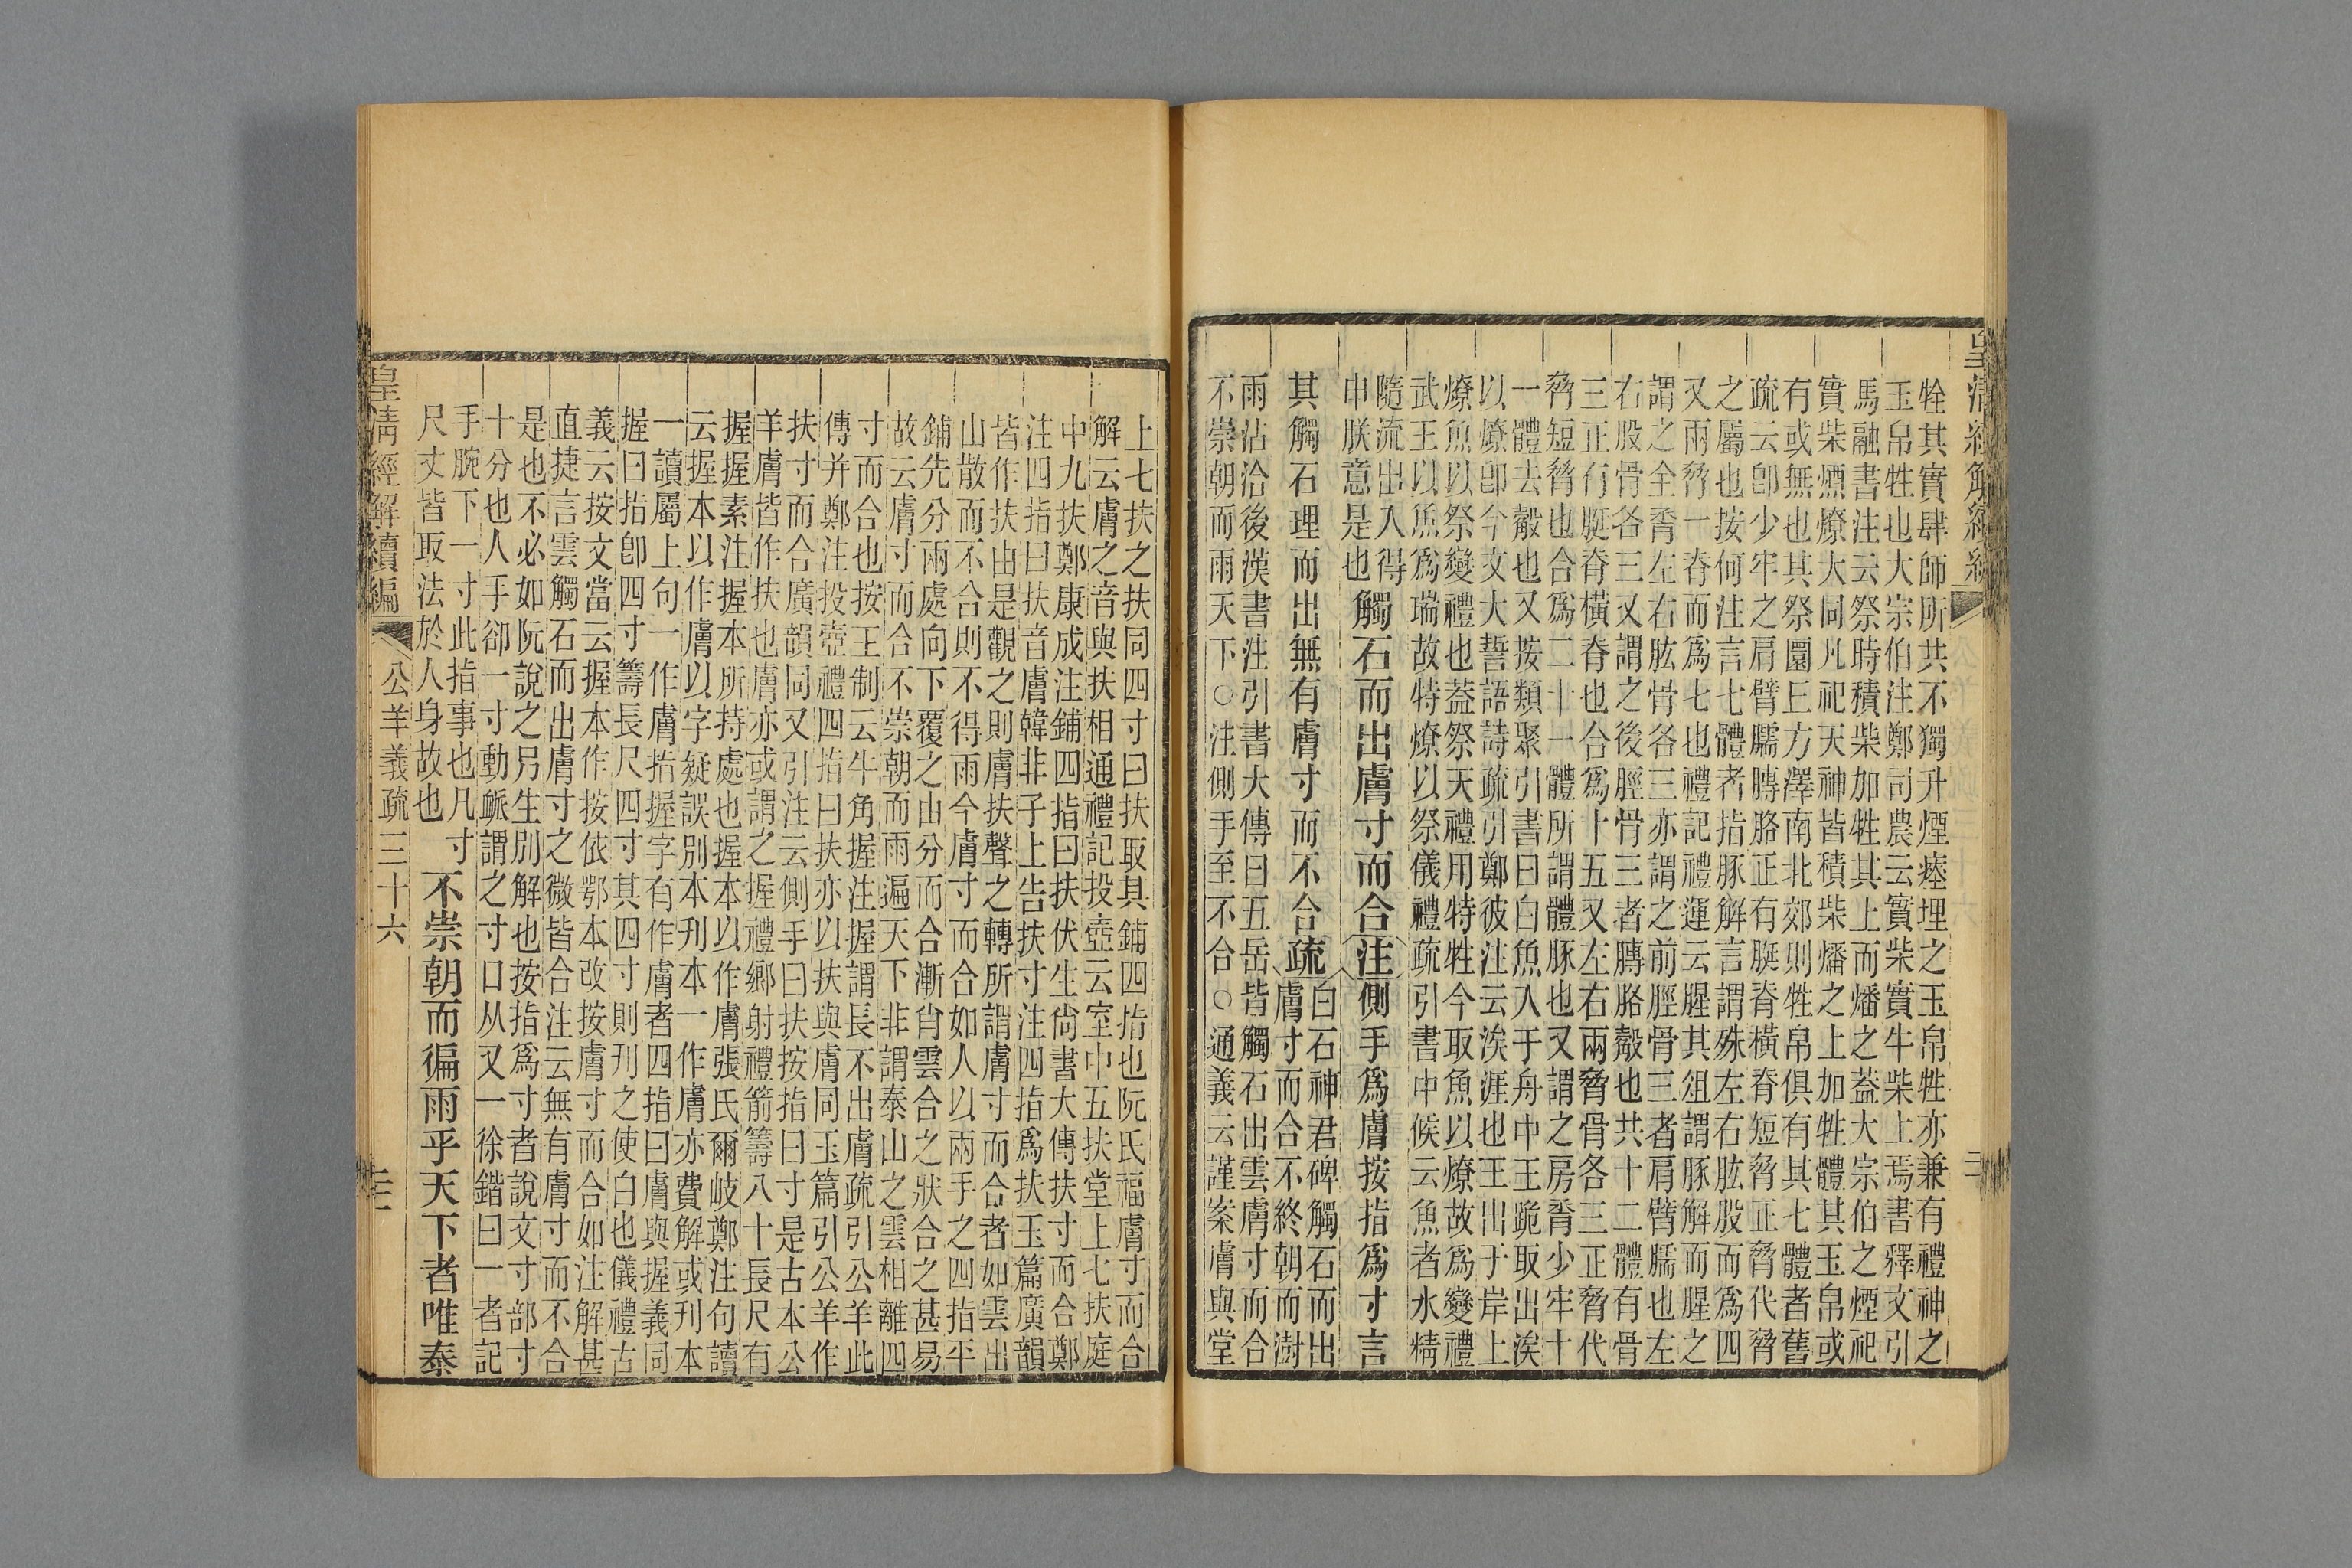 牷其實肆師所共不獨升煙瘞埋之玉帛牲亦兼有禮神之
玉帛牲也大宗伯注鄭司農云實柴實牛柴上焉書釋文引
馬融書注云祭時積柴加牲其上而燔之蓋大宗伯之煙祀
實柴燎大同凡祀天神皆積柴燔之上加牲體其玉帛或
有或無也其祭圜丘方澤南北郊則牲帛俱有其七體者舊
疏云卽少牢之肩臂臑膊胳正有脡脊橫脊短脅正脅代脅
之屬也按何注言七體者指豚解言謂殊左右肱股而爲四
又兩脅一脊而爲七也禮記禮運云腥其俎謂豚解而腥之
謂之全脀左右肱骨各三亦謂之前脛骨三者肩臂臑也左
右股骨各三又謂之後脛骨三者膊胳觳也共十二體有骨
三正有脡脊橫脊也合爲十五又左右兩脅骨各三正脅代
脅短脅也合爲二十一體所謂體豚也又謂之房脀少牢十
一體去觳也又按類聚引書曰白魚入于舟中王跪取出涘
以燎卽今文大誓語詩疏引鄭彼注云涘涯也王出于岸上
燎魚以祭變禮也蓋祭天禮用特牲今取魚以燎故爲變禮
武王以魚爲瑞故特燎以祭儀禮疏引書中候云魚者水精
隨流出入得
申朕意是也觸石而出膚寸而合注側手爲膚按指爲寸言
其觸石理而出無有膚寸而不合疏白石神君碑觸石而出
膚寸而合不終朝而澍
雨沾洽後漢書注引書大傳曰五岳皆觸石出雲膚寸而合
不崇朝而雨天下○注側手至不合○通義云謹案膚與堂
上七扶之扶同四寸曰扶取其鋪四指也阮氏福膚寸而合
解云膚之音與扶相通禮記投壺云室中五扶堂上七扶庭
中九扶鄭康成注鋪四指曰扶伏生尙書大傳扶寸而合鄭
注四指曰扶音膚韓非子上告扶寸注四指爲扶玉篇廣韻
皆作扶由是觀之則膚扶聲之轉所謂膚寸而合者如雲出
山散而不合則不得雨今膚寸而合如人以兩手之四指平
鋪先分兩處向下覆之由分而合漸肖雲合之狀合之甚易
故云膚寸而合不崇朝而雨遍天下非謂泰山之雲相離四
寸而合也按王制云牛角握注握謂長不出膚疏引公羊此
傳并鄭注投壺禮四指曰扶亦以扶與膚同玉篇引公羊作
扶寸而合廣韻同又引注云側手曰扶按指曰寸是古本公
羊膚皆作扶也膚亦或謂之握禮鄉射禮箭籌八十長尺有
握握素注握本所持處也握本以作膚張氏爾岐鄭注句讀
云握本以作膚以字疑誤別本刋本一作膚亦費解或刊本
一讀屬上句一作膚指握字有作膚者四指曰膚與握義同
握曰指卽四寸籌長尺四寸其四寸則刋之使白也儀禮古
義云按文當云握本作按依鄂本改按膚寸而合如注解甚
直捷言雲觸石而出膚寸之微皆合注云無有膚寸而不合
是也不必如阮說之另生別解也按指爲寸者說文寸部寸
十分也人手卻一寸動脈謂之寸口从又一徐鍇曰一者記
手腕下一寸此指事也凡寸
尺丈皆取法於人身故也不崇朝而徧雨乎天下者唯泰
皇清經解續編
公羊義疏三十六